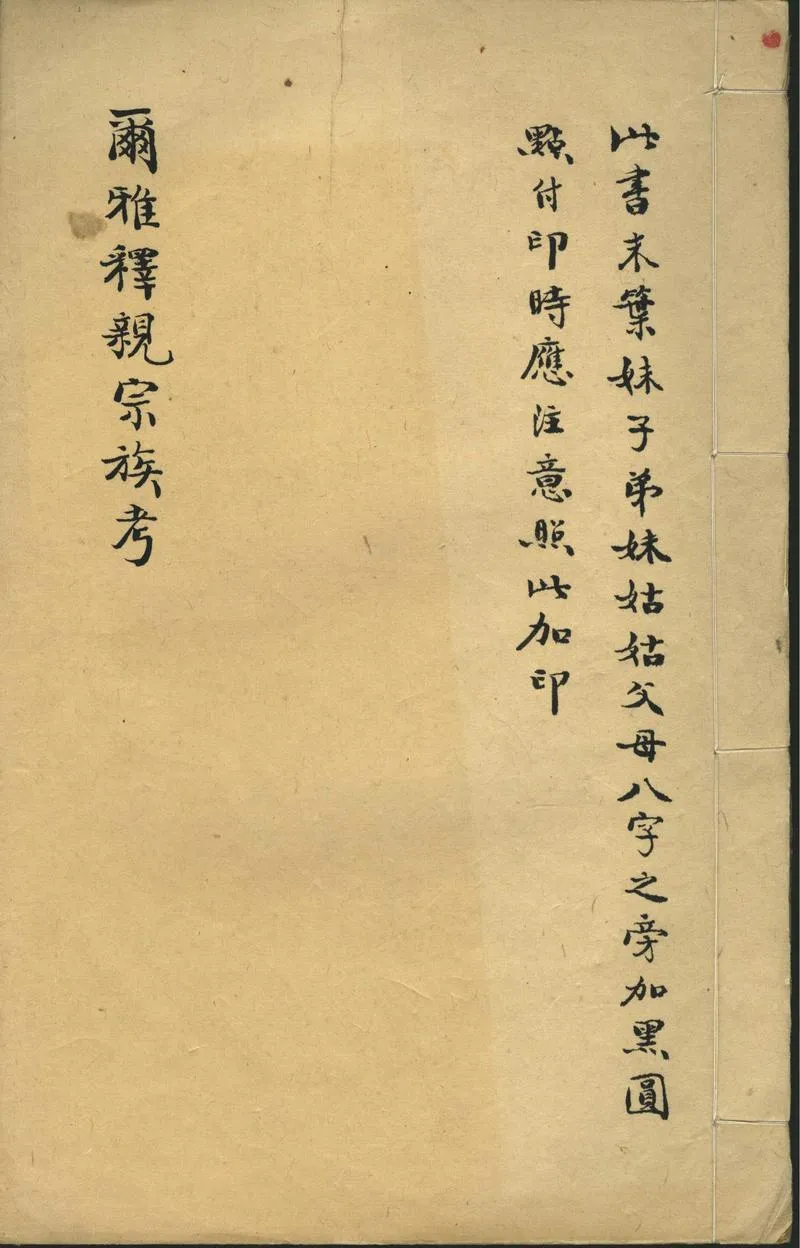 此書末葉妹子弟妹姑姑父母八字之旁加黑圓
點付印時應注意照此加印
爾雅釋親宗族考